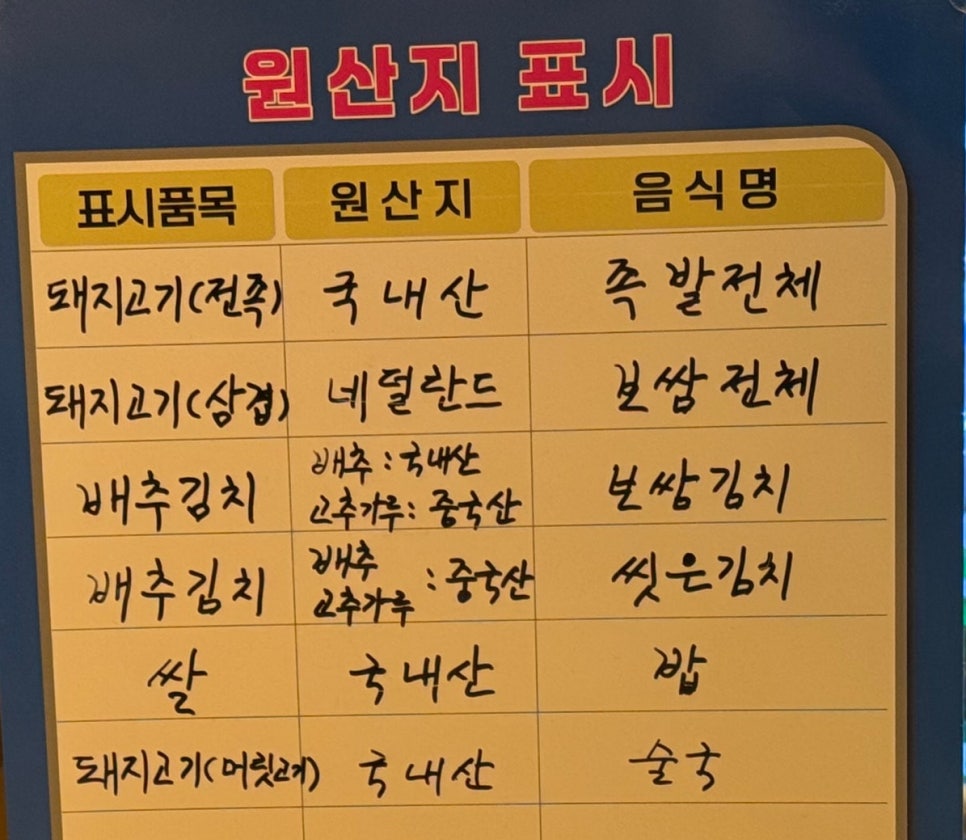 원산지 표시
표시품목 원산지 음식명
돼지고기(전족) 국내산 족발전체
돼지고기(삼겹) 네덜란드 보쌈전체
배추김치 배추:국내산 고추가루:중국산 보쌈김치
배추김치 배추 고추가루 :중국산 씻은김치
쌀 국내산 밥
돼지고기(머릿고기) 국내산 술국